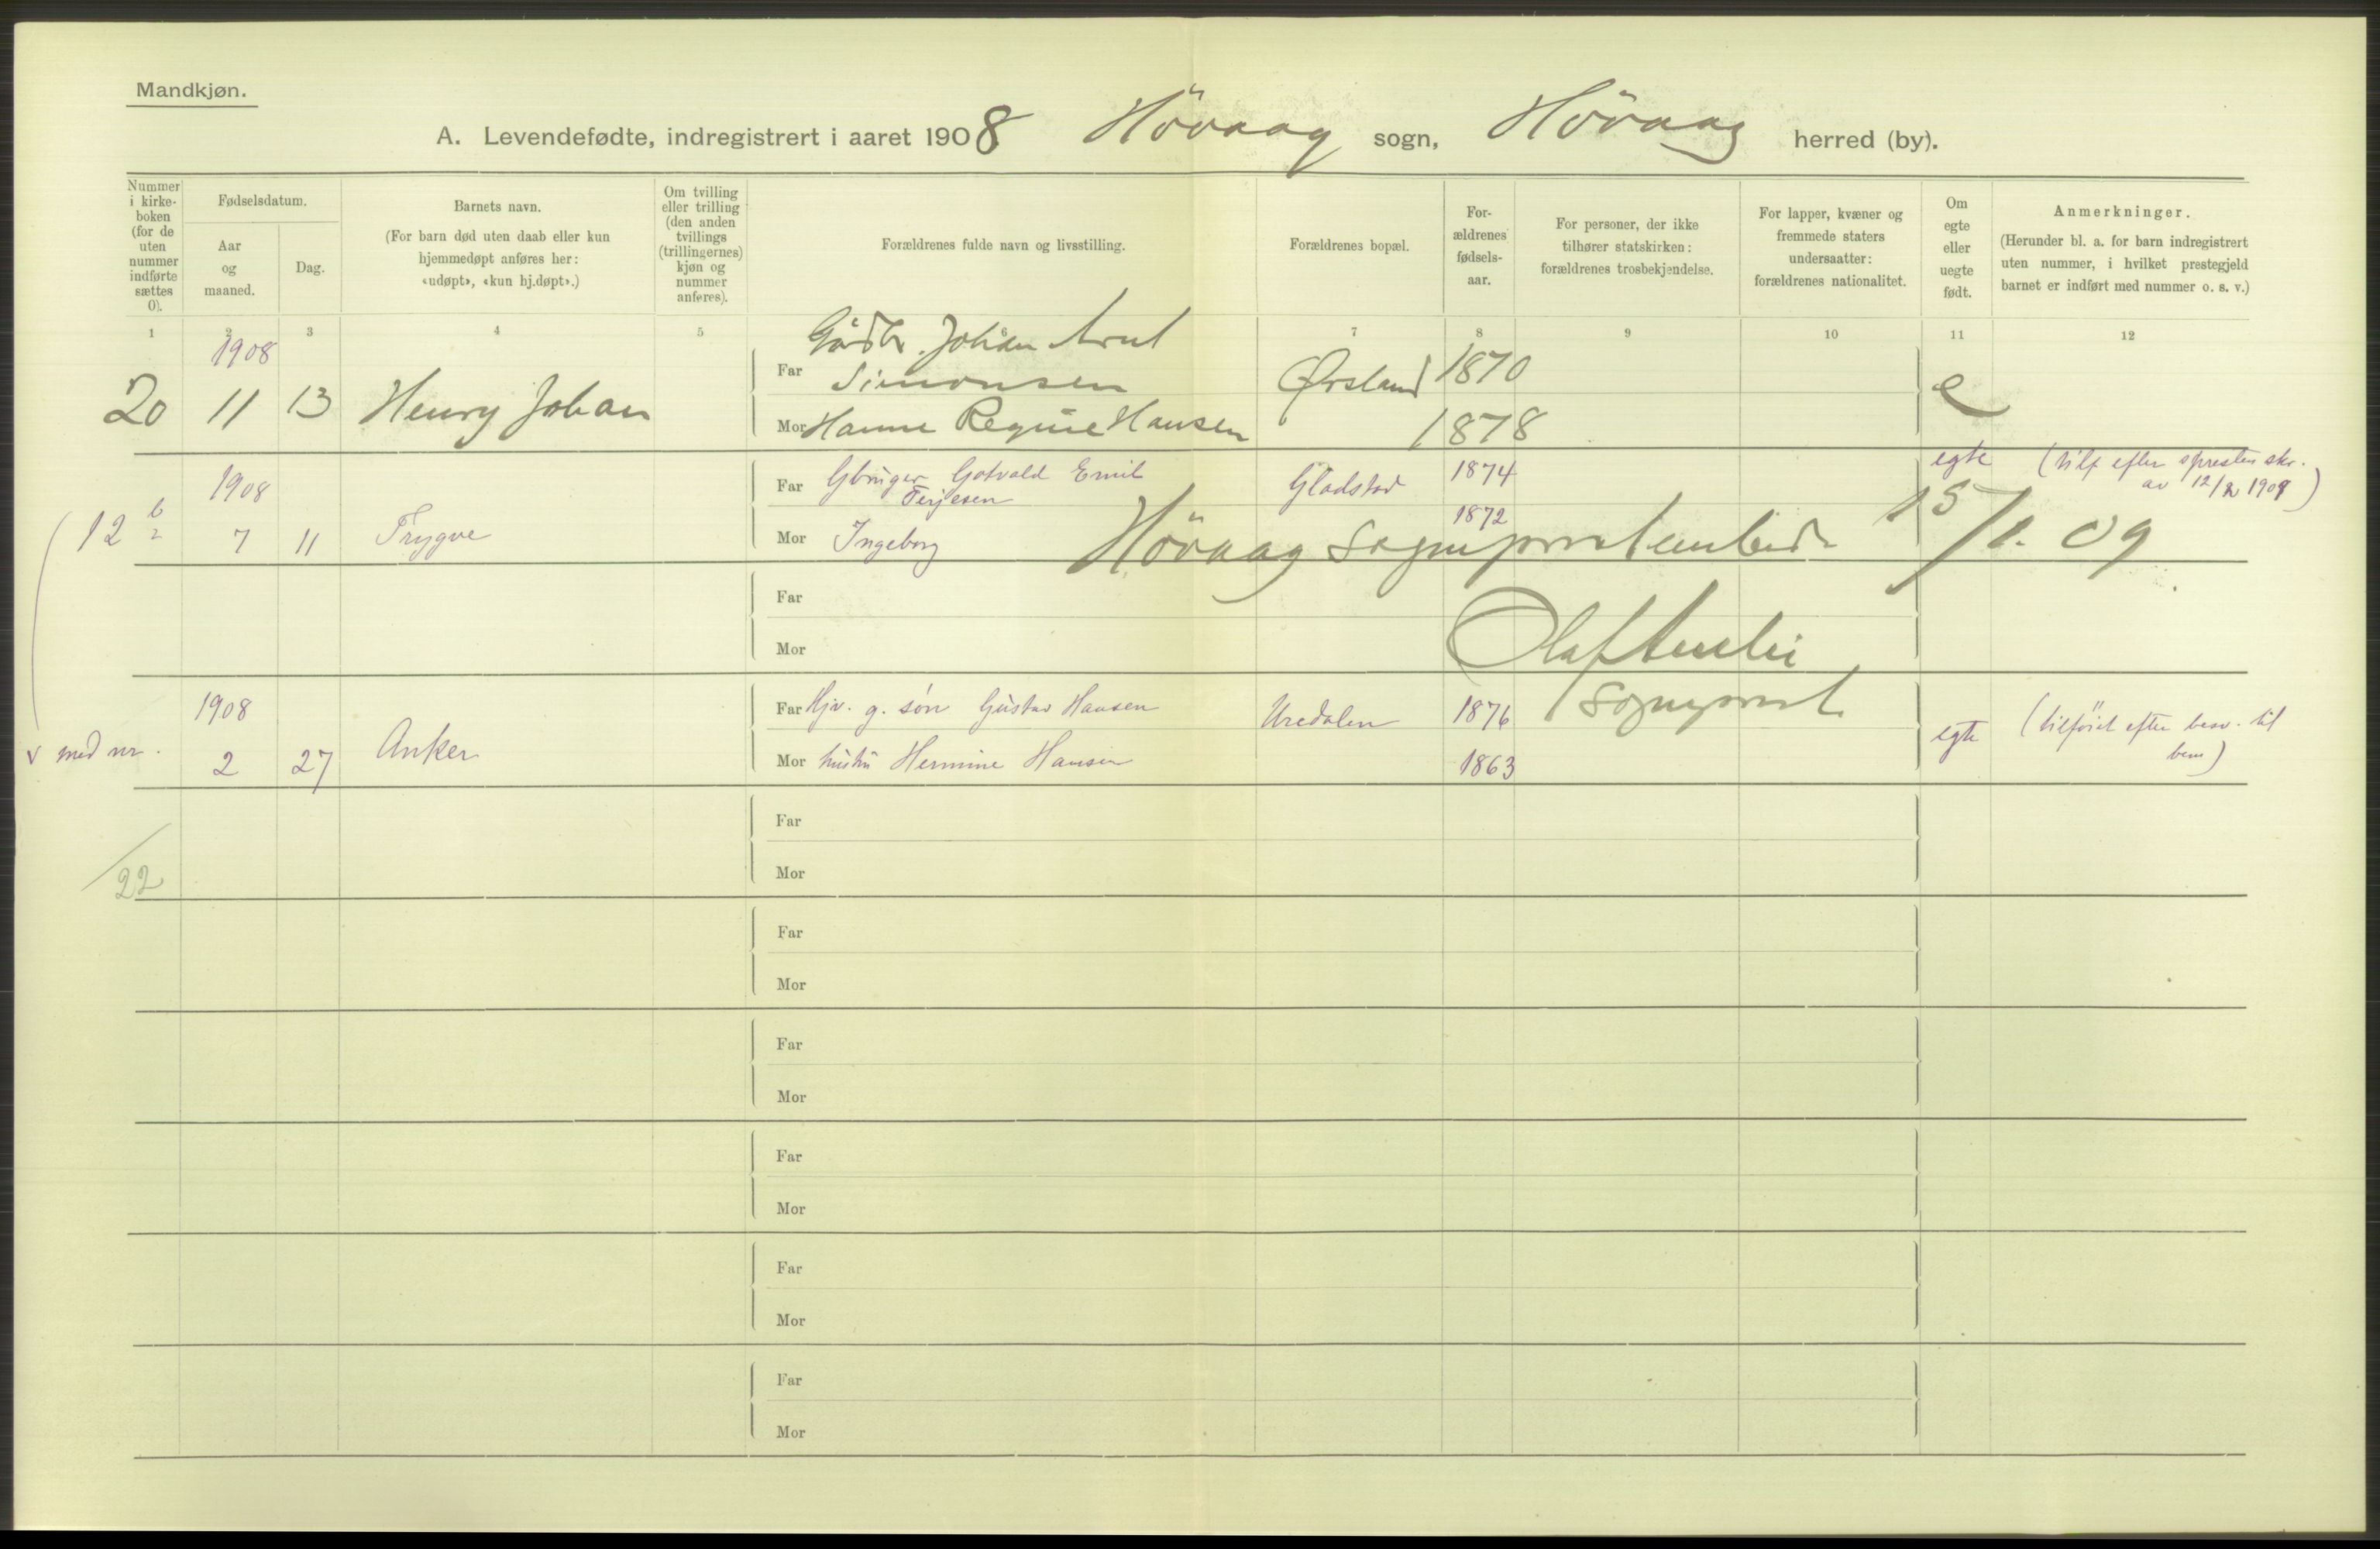 Mandkjøn.
A. Levendefødte, indregistrert i aaret 1908 Hövaag sogn, Hövaag herred (by).
Nummer i kirke-boken (for de uten nummer indførte sættes 0).
Fødselsdatum.
Aar og maaned.
Dag.
Barnets navn.
(For barn død uten daab eller kun hjemmedøpt anføres her: «udøpt», «kun hj.døpt».)
Om tvilling eller trilling (den anden tvillings (trillingernes) kjøn og nummer anføres).
Forældrenes fulde navn og livsstilling.
Forældrenes bopæl.
For-ældrenes fødsels-aar.
For personer, der ikke tilhører statskirken: forældrenes trosbekjendelse.
For lapper, kvæner og fremmede staters undersaatter: forældrenes nationalitet.
Om egte eller uegte født.
Anmerkninger.
(Herunder bl. a. for barn indregistrert uten nummer, i hvilket prestegjeld barnet er indført med nummer o. s. v.)
1 2 3 4 5 6 7 8 9 10 11 12
1908
20 11 13 Henry Johan
Far Gårdbr. Johan Arnt
Simonsen Ørsland 1870 e
Mor Hanne Regine Hansen 1878
1908
12 b 7 11 Trygve
Far Gbruger Gotvald Emil
Terjesen Gladstad 1874 egte (tilf efter sprestens skr.
av 12/2 1909)
Mor Ingeborg 1872
Hövaag sogneprestembede 15/1. 09
Far
Mor
Olaf
sogneprest
1908
v med nr. 2 27 Anker
Far Hjv. g. søn Gustav Hansen Uredalen 1876 egte (tilföiet efter besv. til
bem)
Mor hustru Hermine Hansen 1863
Far
Mor
22
Far
Mor
Far
Mor
Far
Mor
Far
Mor
Far
Mor